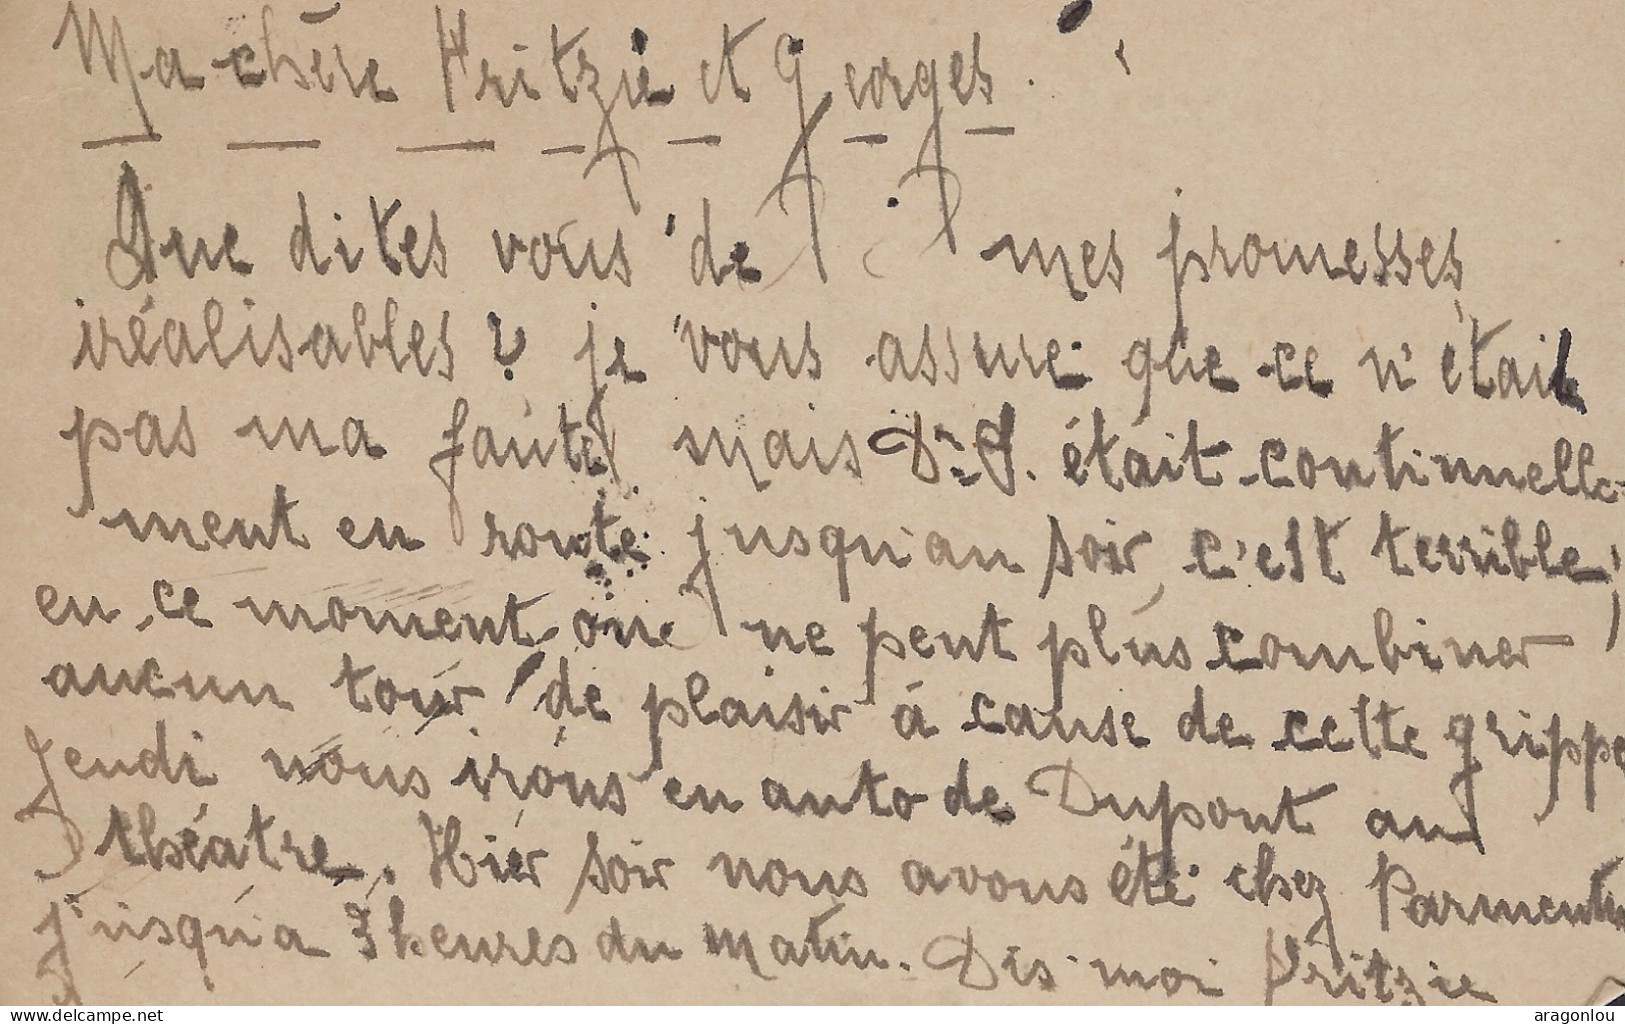 Ma chère Fritzie et Georges.
Que dites vous de mes promesses
iréalisables? je vous assure que ce n'était
pas ma faute mais Dr. J. était continuelle-
ment en route jusqu'au soir, c'est terrible,
en ce moment on ne peut plus combiner
aucun tour de plaisir à cause de cette grippe
Jeudi nous irons en auto de Dupont au
théâtre. Hier soir nous avons été chez Parmentier
jusqu'à 3 heures du matin. Dis-moi Fritzie
www.delcampe.net
aragonlou